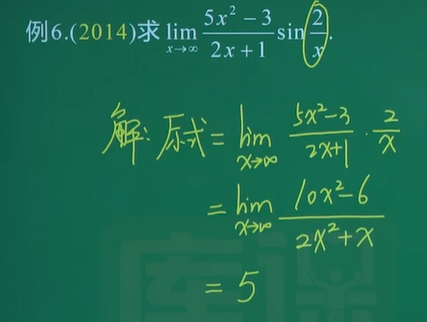 例6.(2014)求 lim x→∞ (5x²-3)/(2x+1) sin 2/x.
解: 原式 = lim x→∞ (5x²-3)/(2x+1) · 2/x
= lim x→∞ (10x²-6)/(2x²+x)
= 5